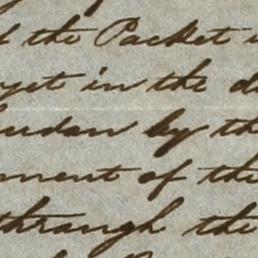 the Packet
yet in the
by the
ment of the
through the